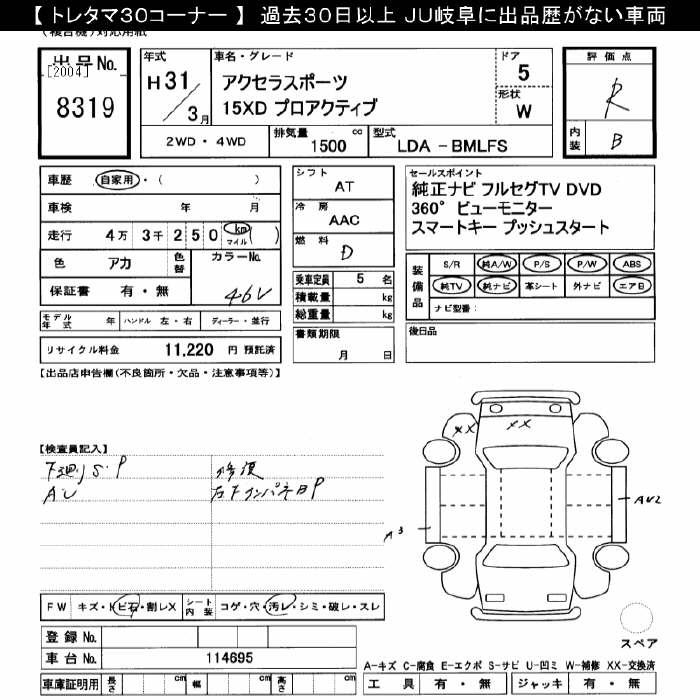 【 トレタマ30コーナー 】 過去30日以上 JU岐阜に出品歴がない車両
出品No.
[2004]
8319
年式
H 31
3月
車名・グレード
アクセラスポーツ
15XD プロアクティブ
ドア
5
形状
W
2WD・4WD
排気量 cc
1500
型式
LDA -BMLFS
評価点
R
内装
B
車歴 自家用・( )
車検 年 月
走行 4万 3千 250 km マイル ( )
色 アカ 色替 カラーNo.
46V
保証書 有・無
モデル年式 年 ハンドル 左・右 ディーラー・並行
リサイクル料金 11,220 円 預託済
シフト
AT
冷房
AAC
燃料
D
乗車定員 5 名
積載量 kg
総重量 kg
書類期限
月 日
セールスポイント
純正ナビ フルセグTV DVD
360°ビューモニター
スマートキー プッシュスタート
装備品
S/R 純A/W P/S P/W ABS
純TV 純ナビ 革シート 外ナビ エアB
ナビ型番:
後日品
【出品店申告欄(不良箇所・欠品・注意事項等)】
【検査員記入】
下廻りS・P
AU
修復
XX
XX
A3
AU2
FW キズ・トビ石・割レX シート内装 コゲ・穴・汚レ・シミ・破レ・スレ
登録 No.
車台 No. 114695
車庫証明用 長さ cm 幅 cm 高さ cm
スペア
A-キズ C-腐食 E-エクボ S-サビ U-凹ミ W-補修 XX-交換済
工具 有・無 ジャッキ 有・無